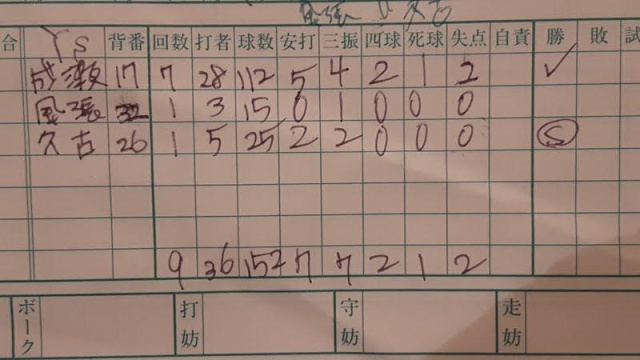 風張 久古
合 Ys 背番 回数 打者 球数 安打 三振 四球 死球 失点 自責 勝 敗 試
成瀬 17 7 28 112 5 4 2 1 2 ✓
風張 32 1 3 15 0 1 0 0 0
久古 26 1 5 25 2 2 0 0 0 S
9 36 152 7 7 2 1 2
ボーク 打妨 守妨 走妨